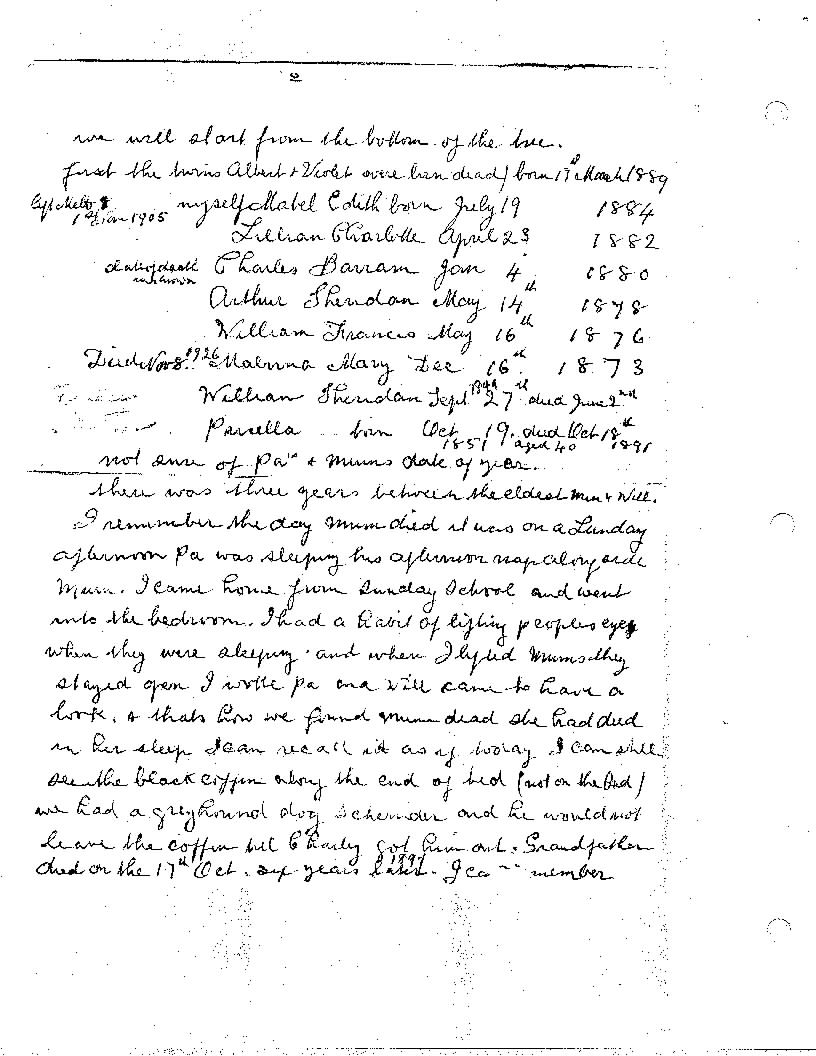 2
we will start from the bottom of the tree.
first the twins Albert + Violet were born dead) born 17th March 1889
myself Mabel Edith born July 19 1884
1905
Lillian Charlotte April 23 1882
date of death unknown Charles Barram Jan 4 1880
Arthur Sheridan May 14th 1878
William Francis May 16th 1876
Died Nov 8th 1926 Malvina Mary Dec 16th 1873
William Sheridan Sept 27th died June 2nd
born Oct 19. died Oct 18th
1851 aged 40 1891
not sure of Pa's + Mums date of year.
there was three years between the eldest Min + Will.
I remember the day Mum died it was on a Sunday
afternoon Pa was sleeping his afternoon nap alongside
Mum. I came home from Sunday School and went
into the bedroom. I had a habit of lifting peoples eyes
when they were sleeping and when I lifted Mums they
stayed open I woke Pa and Will came to have a
look, + thats how we found Mum dead she had died
in her sleep I can recall it as if today I can still
see the black coffin along the end of bed (not on the bed)
we had a greyhound dog and he would not
leave the coffin till Charly got him out. Grandfather
died on the 17th Oct. six years later. 1897 I member